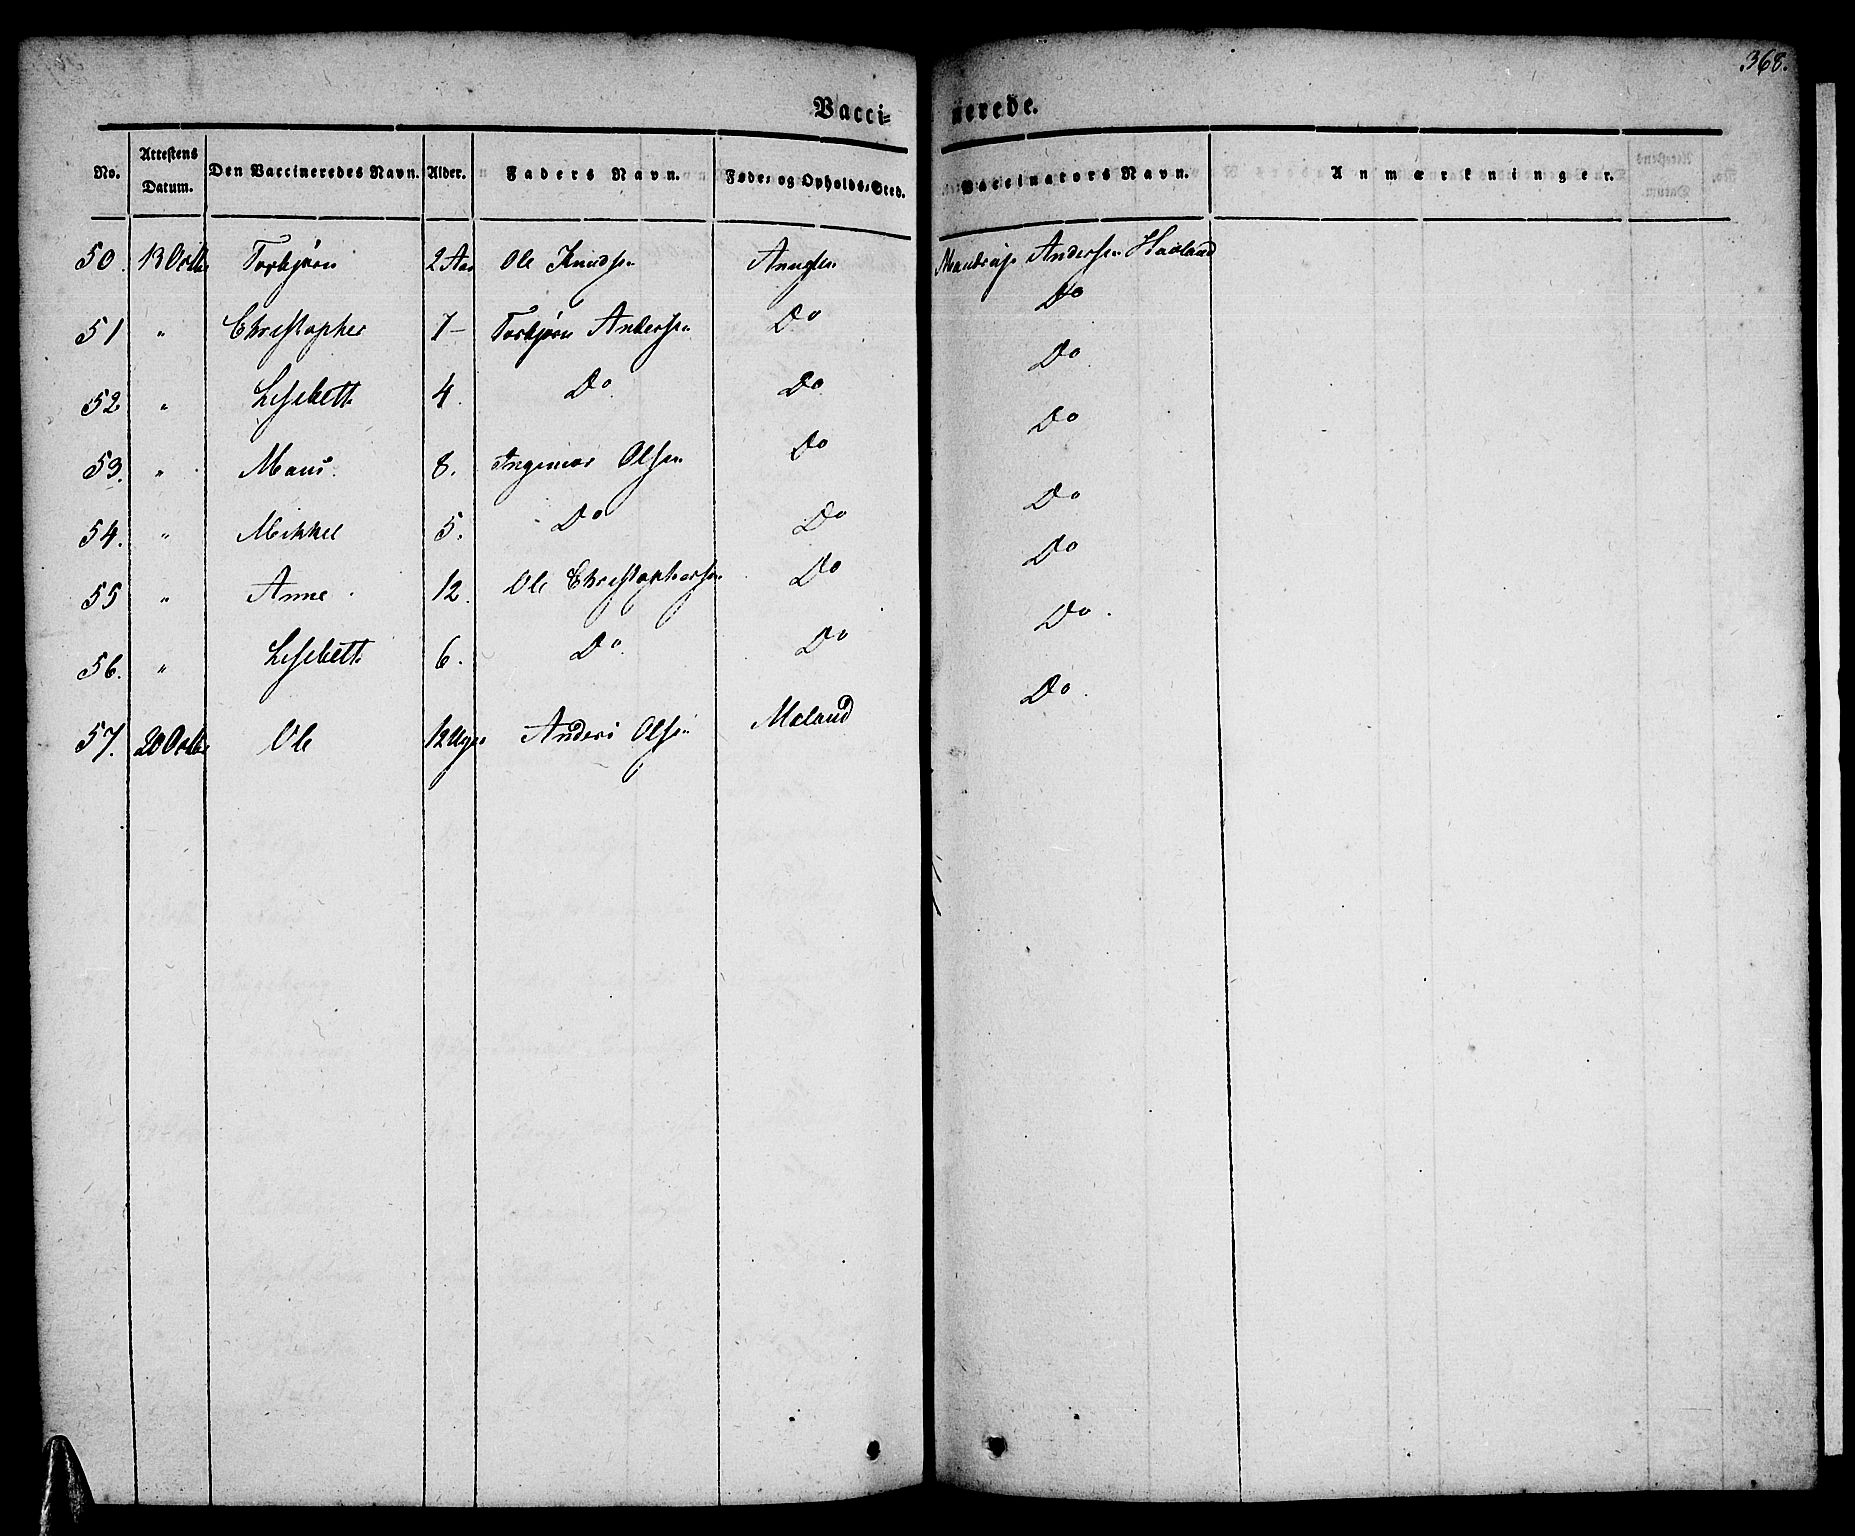 368.
Vaccinerede.
No. Attestens Datum. Den Vaccineredes Navn. Alder. Faders Navn. Føde- og Opholds-Sted. Vaccinators Navn. Anmærkninger.
50. 13 Octbr Torbjørn 2 Aar Ole Knudsen Andersen Haaland
51 " Christopher 7- Torbjørn Andersen Do Do
52 " Lisebeth 4. Do Do Do
53. " Mons. 8. Ingemar Olsen Do Do
54. " Mikkel 5. Do Do Do
55 " Anne 12. Ole Christophersen Do Do
56. " Lisebeth 6. Do Do Do.
57. 20 Octbr Ole 12 Uger Anders Olsen Moland Do.